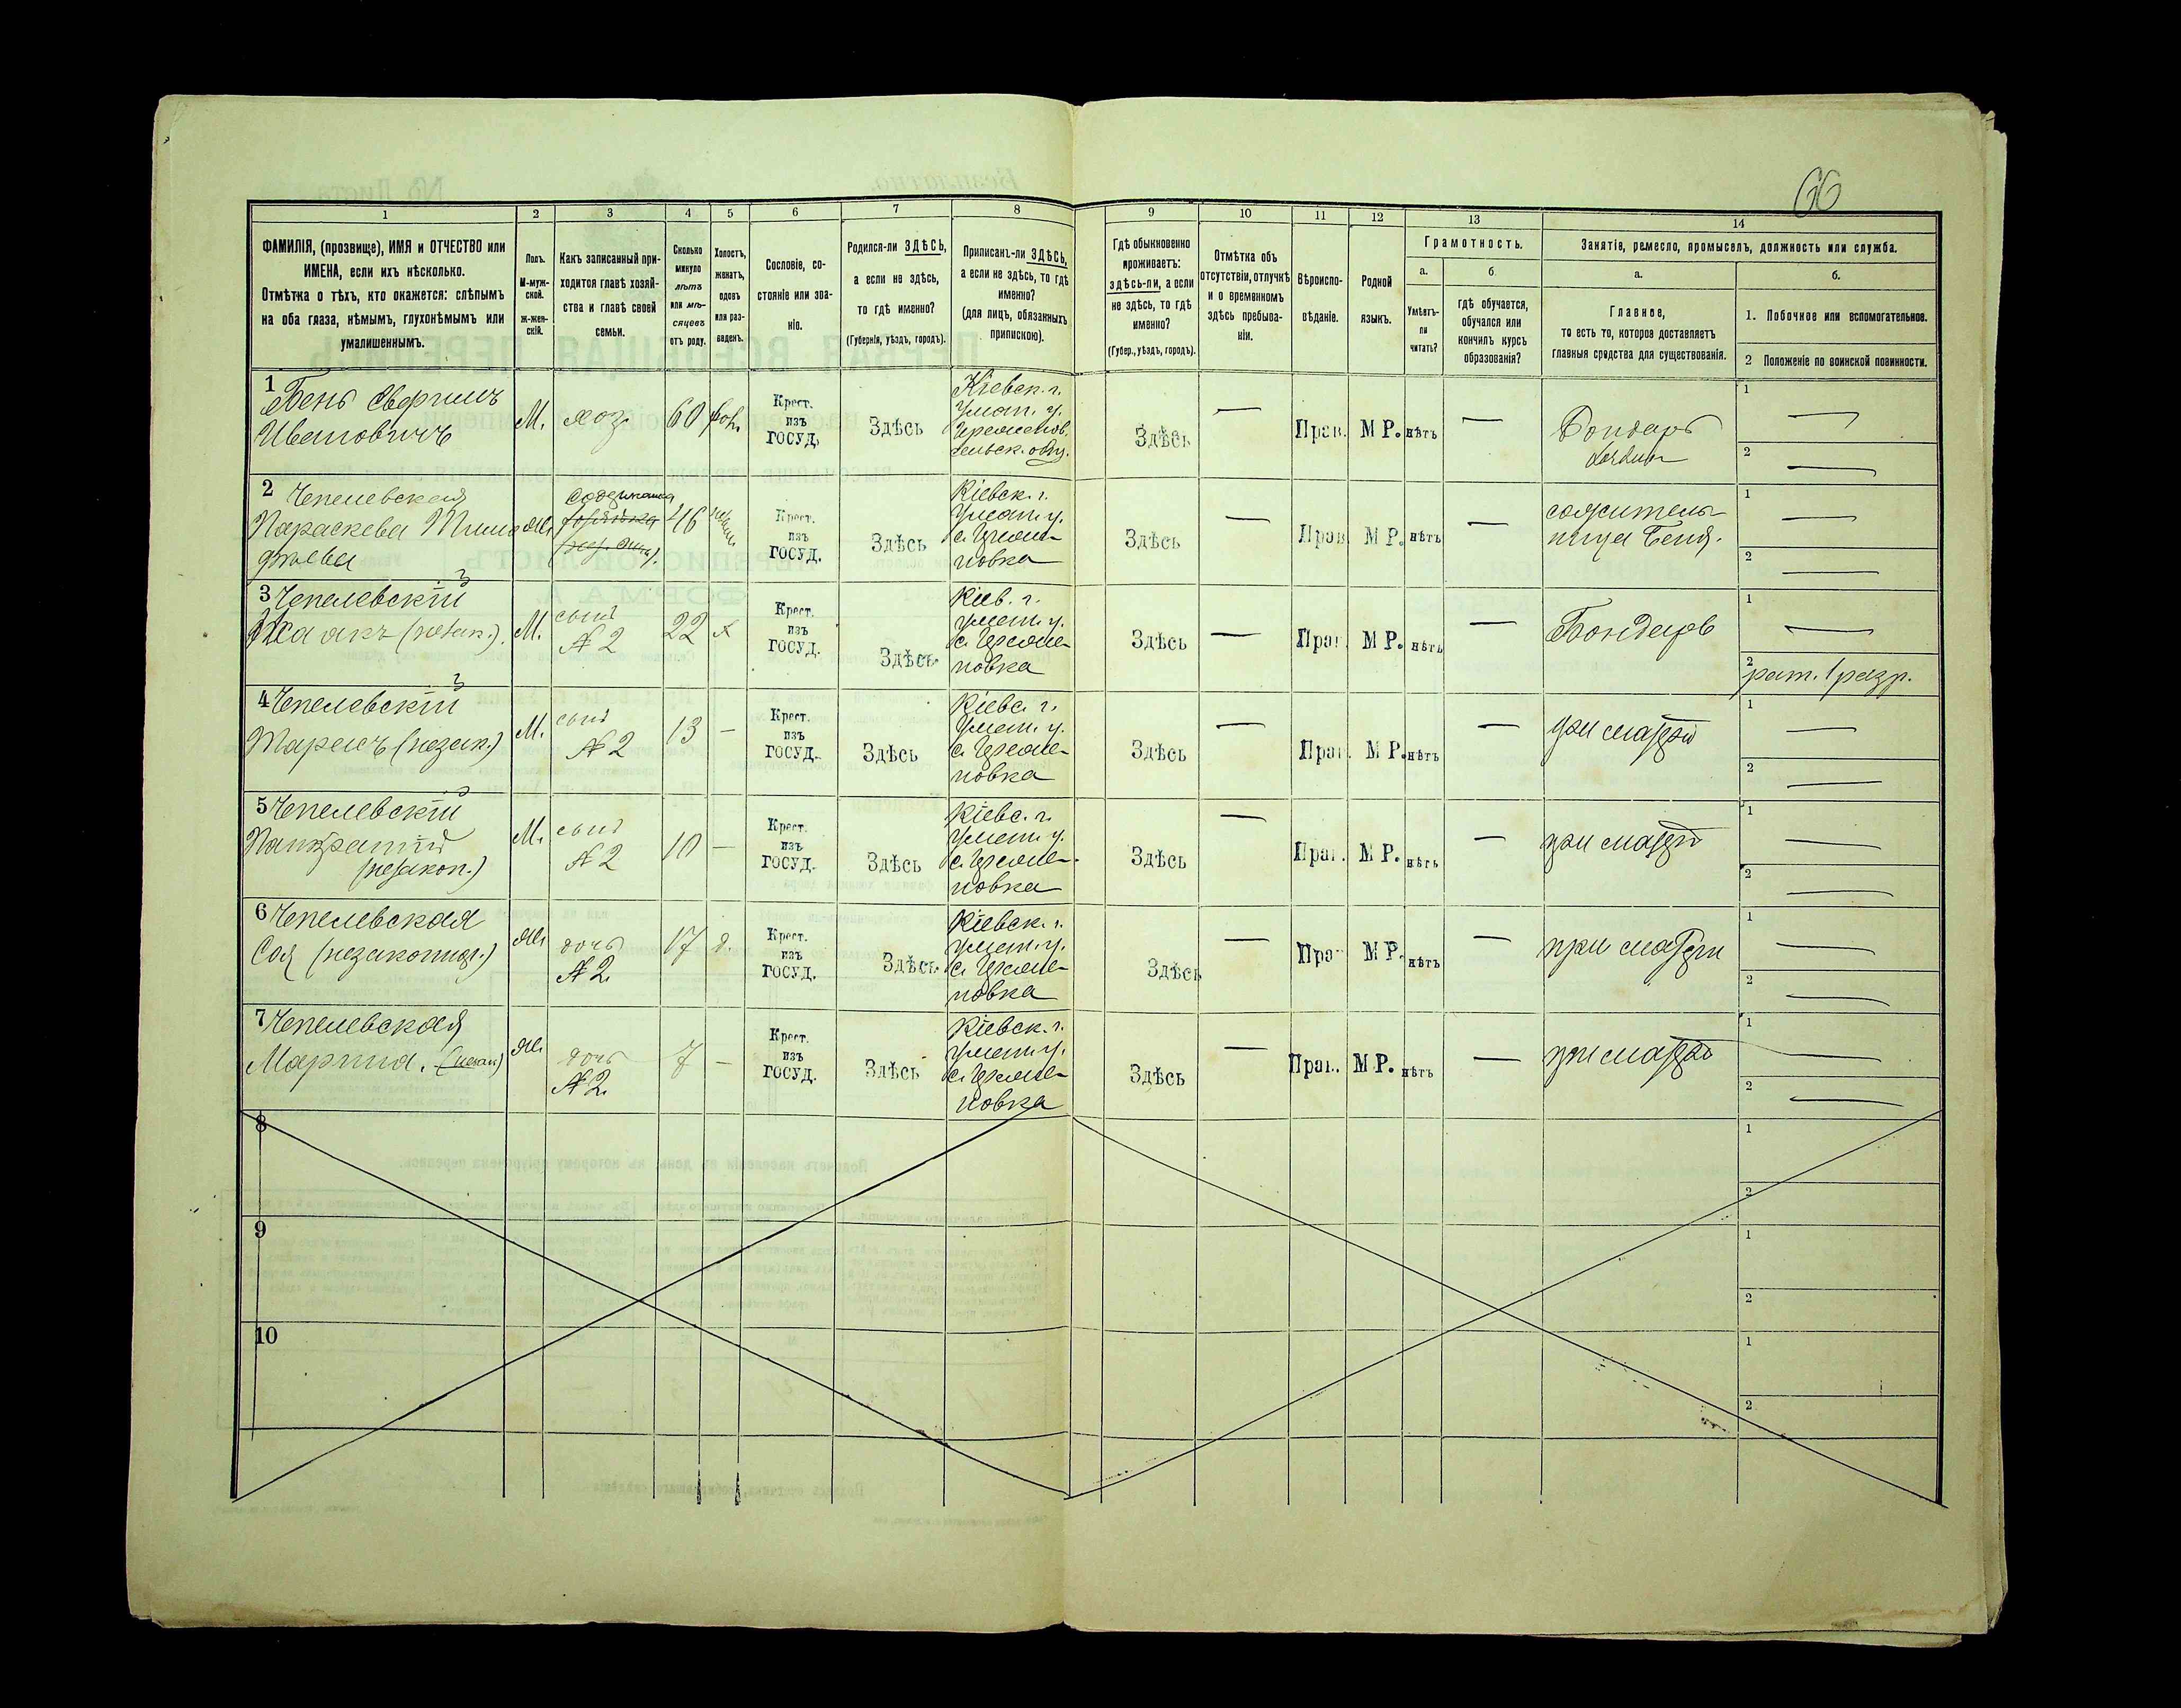 66
1
2
3
4
5
6
7
8
9
10
11
12
13
14
ФАМИЛІЯ, (прозвище), ИМЯ и ОТЧЕСТВО или
ИМЕНА, если ихъ нѣсколько.
Отмѣтка о тѣхъ, кто окажется: слѣпымъ
на оба глаза, нѣмымъ, глухонѣмымъ или
умалишеннымъ.
Полъ.
М-муж-
ской.
ж-жен-
скій.
Какъ записанный при-
ходится главѣ хозяй-
ства и главѣ своей
семьи.
Сколько
минуло
лѣтъ
или мѣ-
сяцевъ
отъ роду.
Холостъ,
женатъ,
вдовъ
или раз-
веденъ.
Сословіе, со-
стояніе или зва-
ніе.
Родился-ли ЗДѢСЬ,
а если не здѣсь,
то гдѣ именно?
(Губернія, уѣздъ, городъ).
Приписанъ-ли ЗДѢСЬ,
а если не здѣсь, то гдѣ
именно?
(для лицъ, обязанныхъ
припискою).
Гдѣ обыкновенно
проживаетъ:
здѣсь-ли, а если
не здѣсь, то гдѣ
именно?
(Губер., уѣздъ, городъ).
Отмѣтка объ
отсутствіи, отлучкѣ
и о временномъ
здѣсь пребыва-
ніи.
Вѣроиспо-
вѣданіе.
Родной
языкъ.
Грамотность.
а.
Умѣетъ-
ли
читать?
б.
гдѣ обучается,
обучался или
кончилъ курсъ
образованія?
Занятіе, ремесло, промыселъ, должность или служба.
а.
Главное,
то есть то, которое доставляетъ
главныя средства для существованія.
б.
1. Побочное или вспомогательное.
2 Положеніе по воинской повинности.
1 Бень
Ивановичъ
М.
хоз.
60
Крест.
изъ
ГОСУД.
Здѣсь
Кіевск. г.
Уман. у.
Здѣсь
—
Прав.
М Р.
нѣтъ
—
Бондарь
1 —
2 —
2 Чепелевская
Параскева
Ж.
46
Крест.
изъ
ГОСУД.
Здѣсь
Кіевск. г.
Уман. у.
новка
Здѣсь
—
Прав
М Р.
нѣтъ
—
сожитель-
ница Беня.
1 —
2 —
3 Чепелевскій
Исаакъ (незак.).
М.
сынъ
№ 2
22
х
Крест.
изъ
ГОСУД.
Здѣсь
Кіев. г.
Уман. у.
новка
Здѣсь
—
Прав.
М Р.
нѣтъ
—
Бондарь
1 —
2 рат. 1 разр.
4 Чепелевскій
(незак.)
М.
сынъ
№ 2
13
—
Крест.
изъ
ГОСУД.
Здѣсь
Кіевс. г.
Уман. у.
новка
Здѣсь
—
Прав.
М Р.
нѣтъ
—
при матери
1 —
2 —
5 Чепелевскій
Панкратій
(незакон.)
М.
сынъ
№ 2
10
—
Крест.
изъ
ГОСУД.
Здѣсь
Кіевс. г.
Уман. у.
новка
Здѣсь
—
Прав.
М Р.
нѣтъ
—
при матери
1 —
2 —
6 Чепелевская
Ж.
дочь
№ 2.
17
д.
Крест.
изъ
ГОСУД.
Здѣсь
Кіевск. г.
Уман. у.
новка
Здѣсь
—
Прав
М Р.
нѣтъ
—
при матери
1 —
2 —
7 Чепелевская
Марина. (незак)
Ж.
дочь
№ 2.
7
—
Крест.
изъ
ГОСУД.
Здѣсь
Кіевск. г.
Уман. у.
новка
Здѣсь
—
Прав.
М Р.
нѣтъ
—
при матери
1 —
2 —
8
1
2
9
1
2
10
1
2